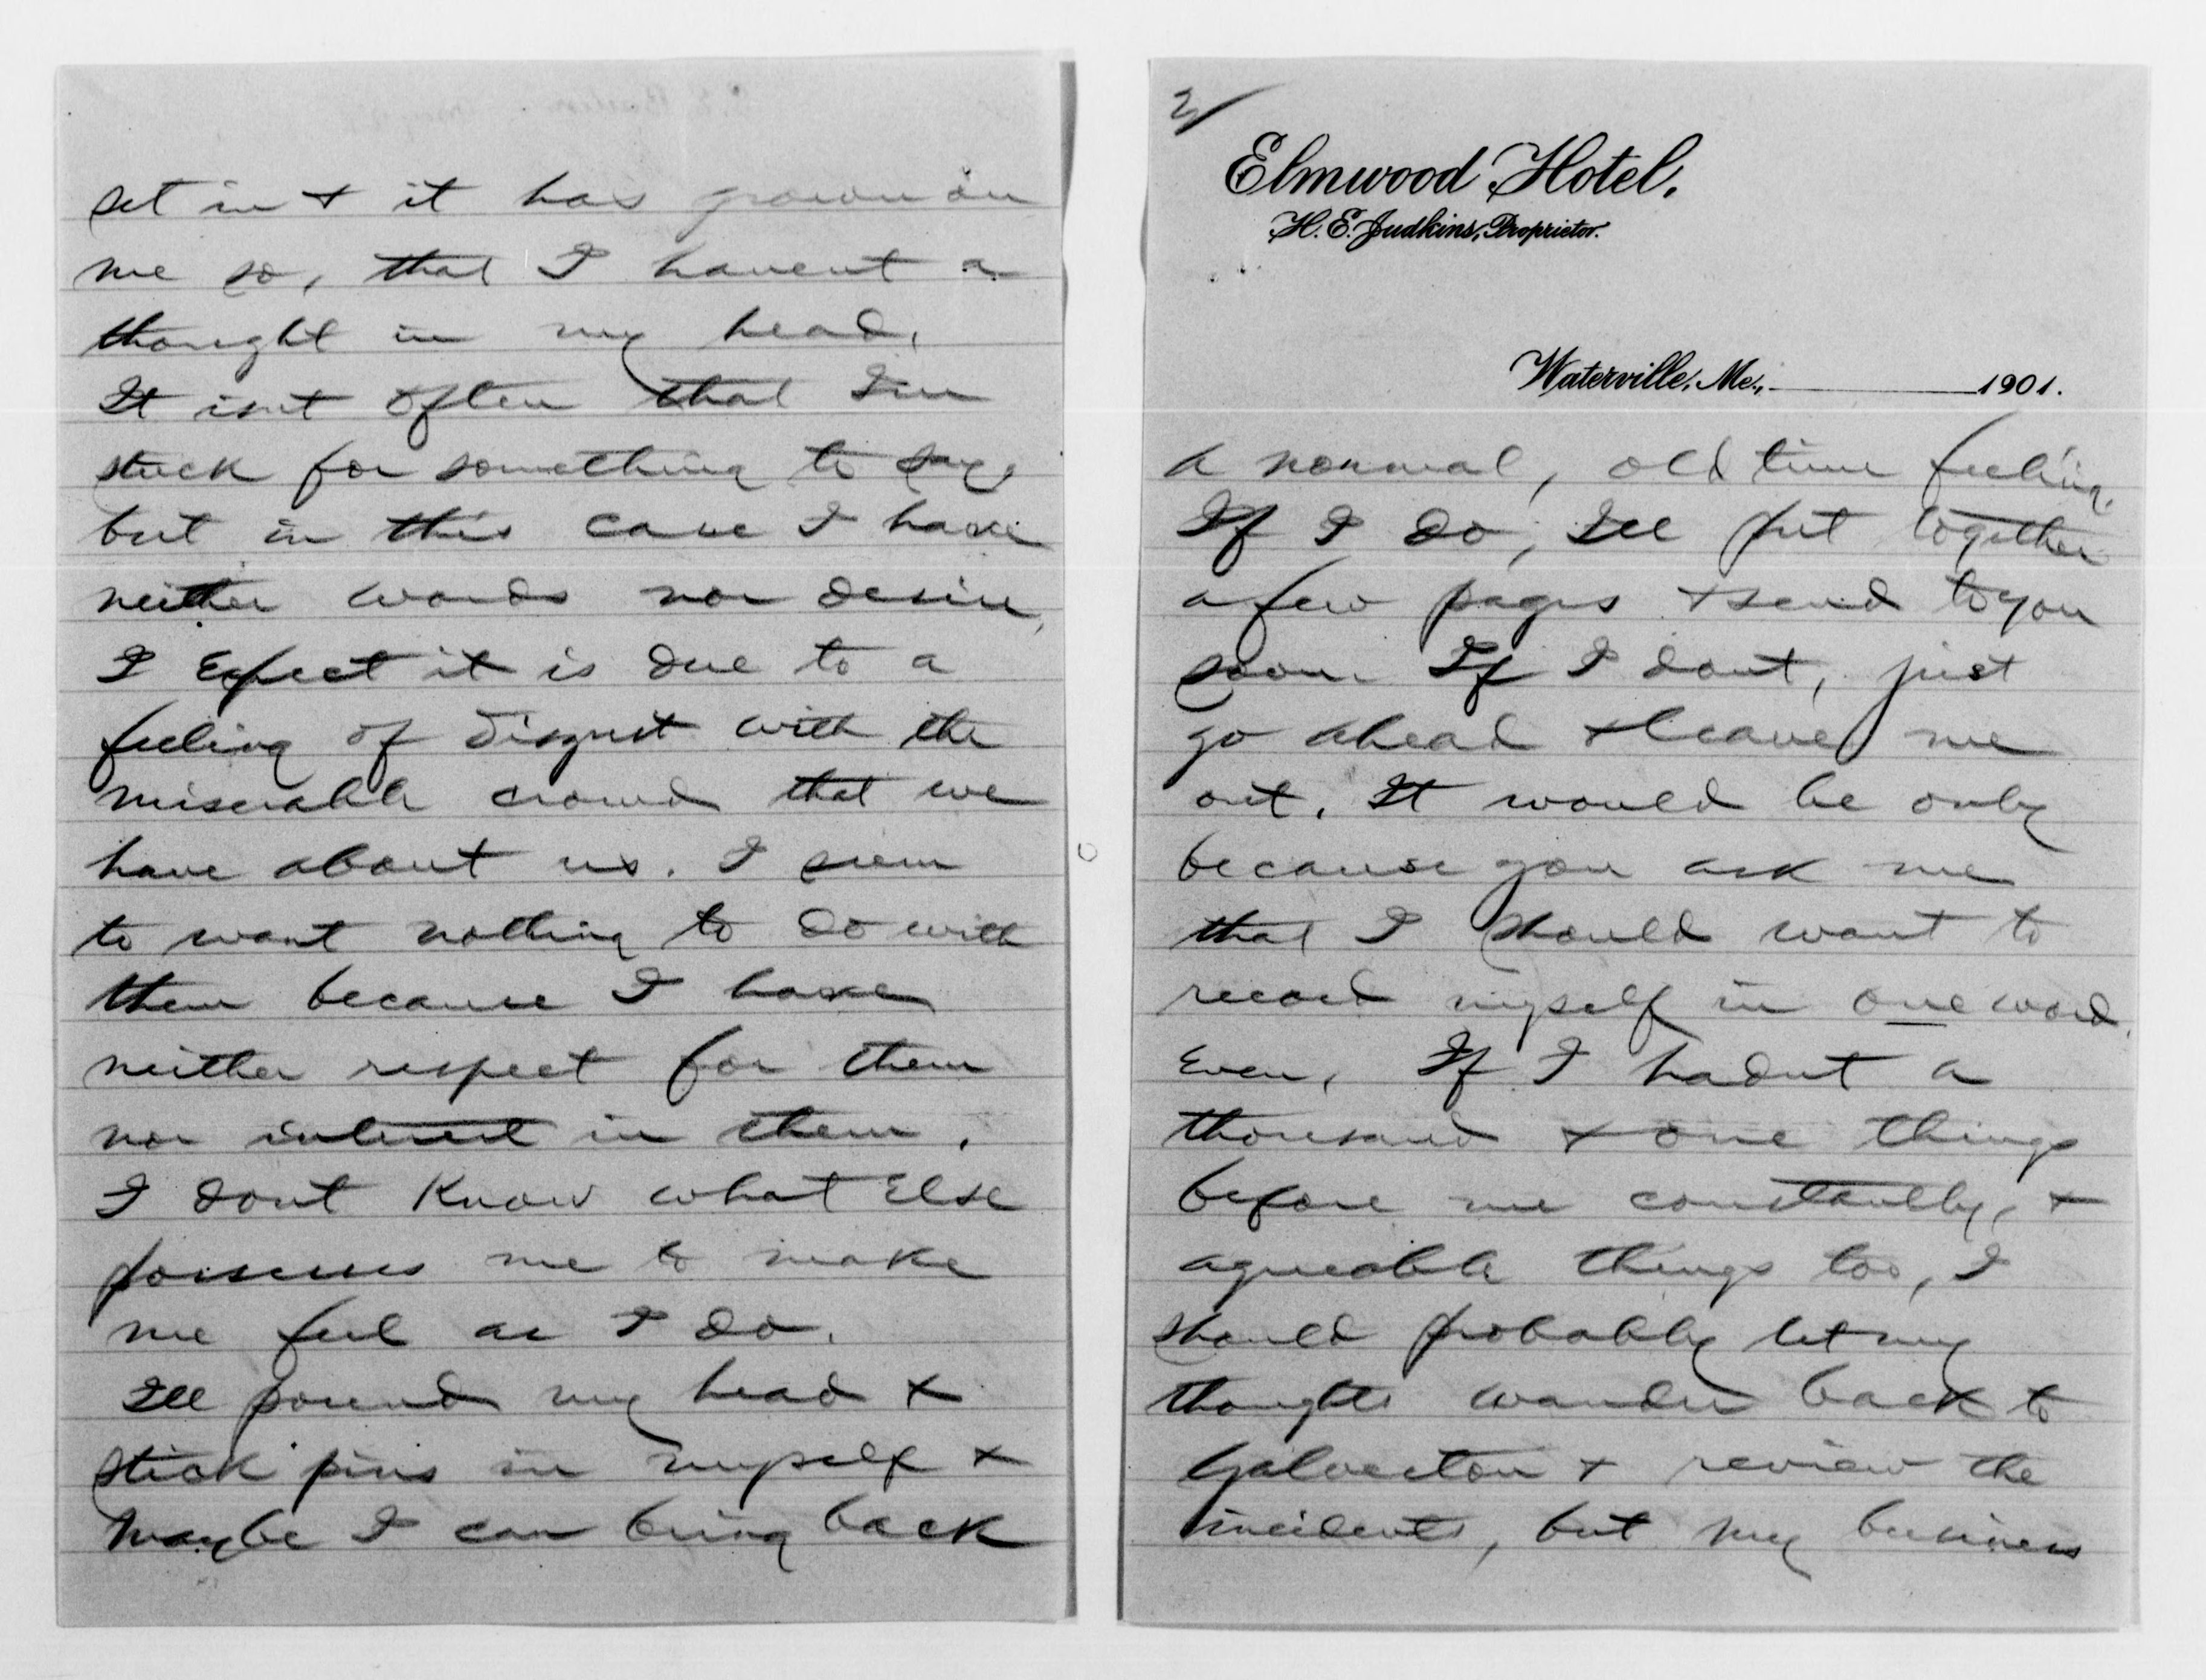 set in + it has grown on
me so, that I havent a
thought in my head.
It isnt often that Im
stuck for something to say,
but in this case I have
neither words nor desire,
I Expect it is due to a
feeling of disgust with the
miserable crowd that we
have about us. I seem
to want nothing to do with
them because I have
neither respect for them
nor interest in them.
I dont Know what Else
possesses me to make
me feel as I do.
Ill pound my head +
stick pins in myself +
maybe I can bring back
2/
Elmwood Hotel,
H. E. Judkins, Proprietor.
Waterville, Me., 1901.
a normal, old time feeling.
If I do, Ill put together
a few pages + send to you
soon. If I dont, just
go ahead + leave me
out. It would be only
because you ask me
that I should want to
record myself in one word,
Even, If I hadnt a
thousand + one things
before me constantly, +
agreeable things too, I
should probably let my
thoughts wander back to
Galveston + review the
incidents, but my business